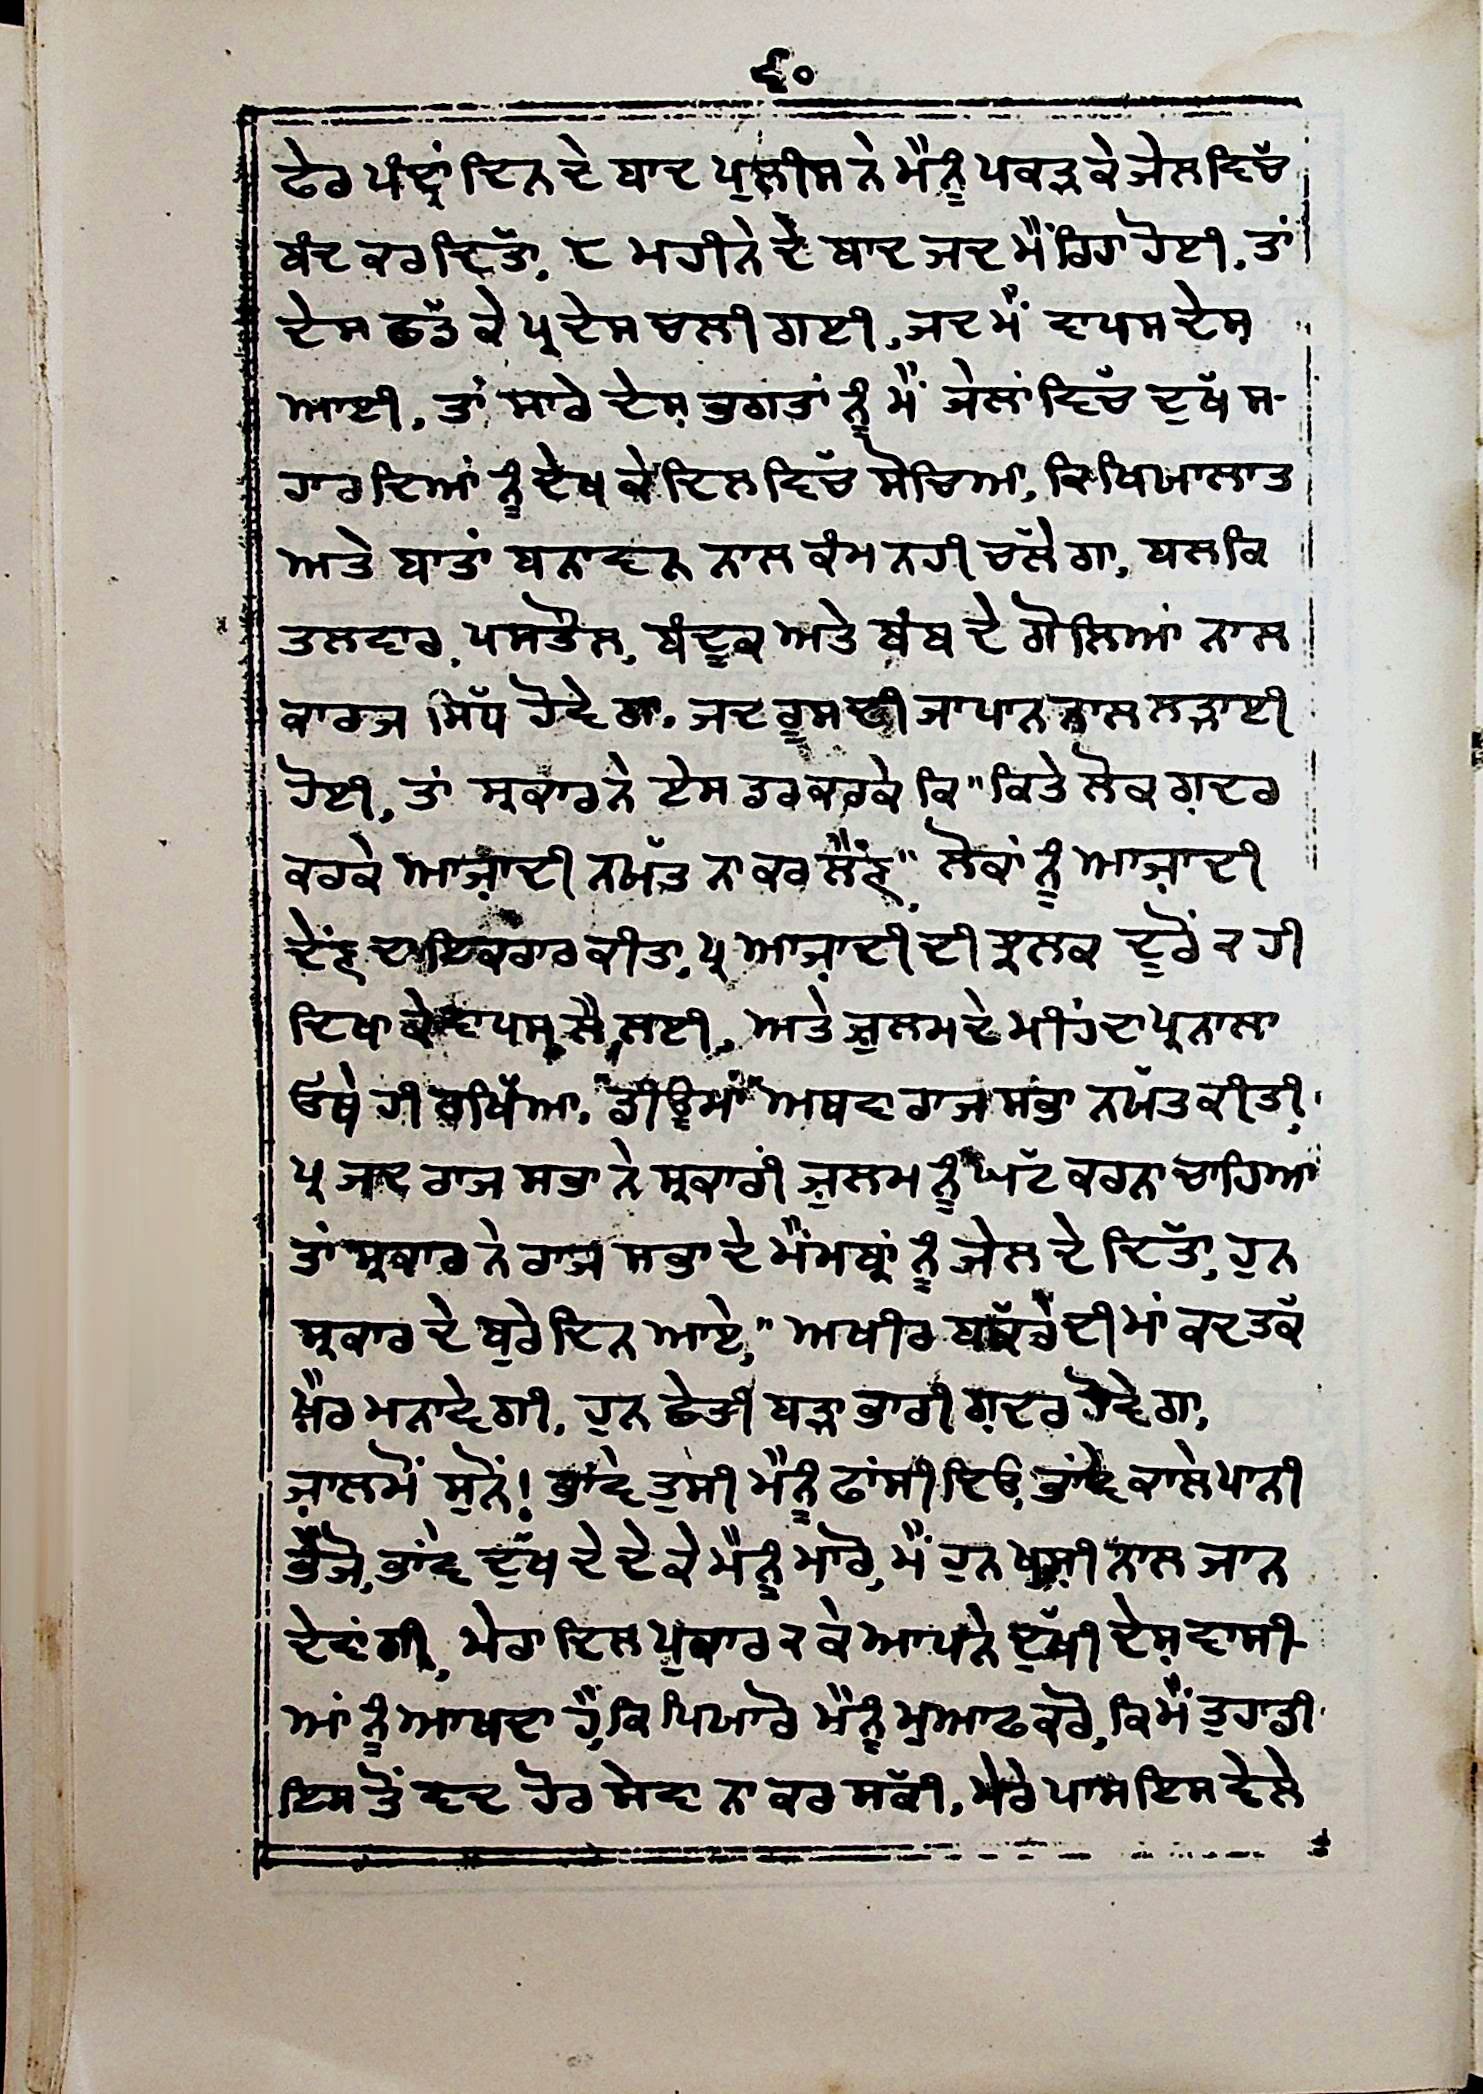 ੬੦
ਫੇਰ ਪੰਦ੍ਰਾਂ ਦਿਨ ਦੇ ਬਾਦ ਪੁਲੀਸ ਨੇ ਮੈਨੂੰ ਪਕੜ ਕੇ ਜੇਲ ਵਿੱਚ
ਬੰਦ ਕਰ ਦਿੱਤਾ, ੮ ਮਹੀਨੇ ਦੇ ਬਾਦ ਜਦ ਮੈਂ ਰਿਹਾ ਹੋਈ, ਤਾਂ
ਦੇਸ ਛੱਡ ਕੇ ਪ੍ਰਦੇਸ ਚਲੀ ਗਈ, ਜਦ ਮੈਂ ਵਾਪਸ ਦੇਸ਼
ਆਈ, ਤਾਂ ਸਾਰੇ ਦੇਸ਼ ਭਗਤਾਂ ਨੂੰ ਮੈਂ ਜੇਲਾਂ ਵਿੱਚ ਦੁੱਖ ਸ-
ਹਾਰਦਿਆਂ ਨੂੰ ਦੇਖ ਕੇ ਦਿਲ ਵਿੱਚ ਸੋਚਿਆ, ਕਿ ਖਿਯਾਲਾਤ
ਅਤੇ ਬਾਤਾਂ ਬਨਾਵਨ ਨਾਲ ਕੰਮ ਨਹੀ ਚੱਲੇਗਾ, ਬਲਕਿ
ਤਲਵਾਰ, ਪਸਤੌਲ, ਬੰਦੂਕ ਅਤੇ ਬੰਬ ਦੇ ਗੋਲਿਆਂ ਨਾਲ
ਕਾਰਜ ਸਿੱਧ ਹੋਵੇਗਾ. ਜਦ ਰੂਸ ਦੀ ਜਾਪਾਨ ਨਾਲ ਲੜਾਈ
ਹੋਈ, ਤਾਂ ਸ੍ਰਕਾਰ ਨੇ ਏਸ ਡਰ ਕਰਕੇ ਕਿ "ਕਿਤੇ ਲੋਕ ਗ਼ਦਰ
ਕਰਕੇ ਆਜ਼ਾਦੀ ਨਯੱਤ ਨਾ ਕਰ ਲੈਂਣ" ਲੋਕਾਂ ਨੂੰ ਆਜ਼ਾਦੀ
ਦੇਂਣ ਦਾ ਇਕਰਾਰ ਕੀਤਾ, ਪ੍ਰ ਆਜ਼ਾਦੀ ਦੀ ਝਲਕ ਦੂਰੋਂ ੨ ਹੀ
ਦਿਖਾ ਕੇ ਵਾਪਸ ਲੈ ਲਈ, ਅਤੇ ਜ਼ੁਲਮ ਦੇ ਮੀਂਹ ਦਾ ਪ੍ਰਨਾਲਾ
ਓਥੇ ਹੀ ਰਖਿੱਆ. "ਡੀਊਮਾਂ" ਅਥਵਾ ਰਾਜ ਸਭਾ ਨਯੱਤ ਕੀਤੀ,
ਪ੍ਰ ਜਦ ਰਾਜ ਸਭਾ ਨੇ ਸ੍ਰਕਾਰੀ ਜ਼ੁਲਮ ਨੂੰ ਘੱਟ ਕਰਨਾ ਚਾਹਿਆ
ਤਾਂ ਸ੍ਰਕਾਰ ਨੇ ਰਾਜ ਸਭਾ ਦੇ ਮੈਂਮਬ੍ਰਾਂ ਨੂੰ ਜੇਲ ਦੇ ਦਿੱਤਾ, ਹੁਨ
ਸ੍ਰਕਾਰ ਦੇ ਬੁਰੇ ਦਿਨ ਆਏ, "ਅਖੀਰ ਬੱਕਰੇ ਦੀ ਮਾਂ ਕਦ ਤੱਕ
ਖ਼ੈਰ ਮਨਾਵੇਗੀ, ਹੁਨ ਛੇਤੀ ਬੜਾ ਭਾਰੀ ਗ਼ਦਰ ਹੋਵੇਗਾ,
ਜ਼ਾਲਮੋਂ ਸੁਨੋਂ! ਭਾਂਵੇ ਤੁਸੀ ਮੈਨੂੰ ਫਾਂਸੀ ਦਿਓ, ਭਾਂਵੇ ਕਾਲੇ ਪਾਨੀ
ਭੇਜੋ, ਭਾਂਵੇ ਦੁੱਖ ਦੇ ਦੇ ਕੇ ਮੈਨੂੰ ਮਾਰੋ, ਮੈਂ ਹੁਨ ਖੁਸ਼ੀ ਨਾਲ ਜਾਨ
ਦੇਵਾਂਗੀ, ਮੇਰਾ ਦਿਲ ਪੁਕਾਰ ੨ ਕੇ ਆਪਨੇ ਦੁੱਖੀ ਦੇਸ਼ ਵਾਸੀ-
ਆਂ ਨੂੰ ਆਖਦਾ ਹੈ, ਕਿ ਪਿਯਾਰੋ ਮੈਨੂੰ ਮੁਆਫ ਕਰੋ, ਕਿ ਮੈਂ ਤੁਹਾਡੀ
ਇਸ ਤੋਂ ਵਦ ਹੋਰ ਸੇਵਾ ਨਾ ਕਰ ਸੱਕੀ, ਮੇਰੇ ਪਾਸ ਇਸ ਵੇਲੇ